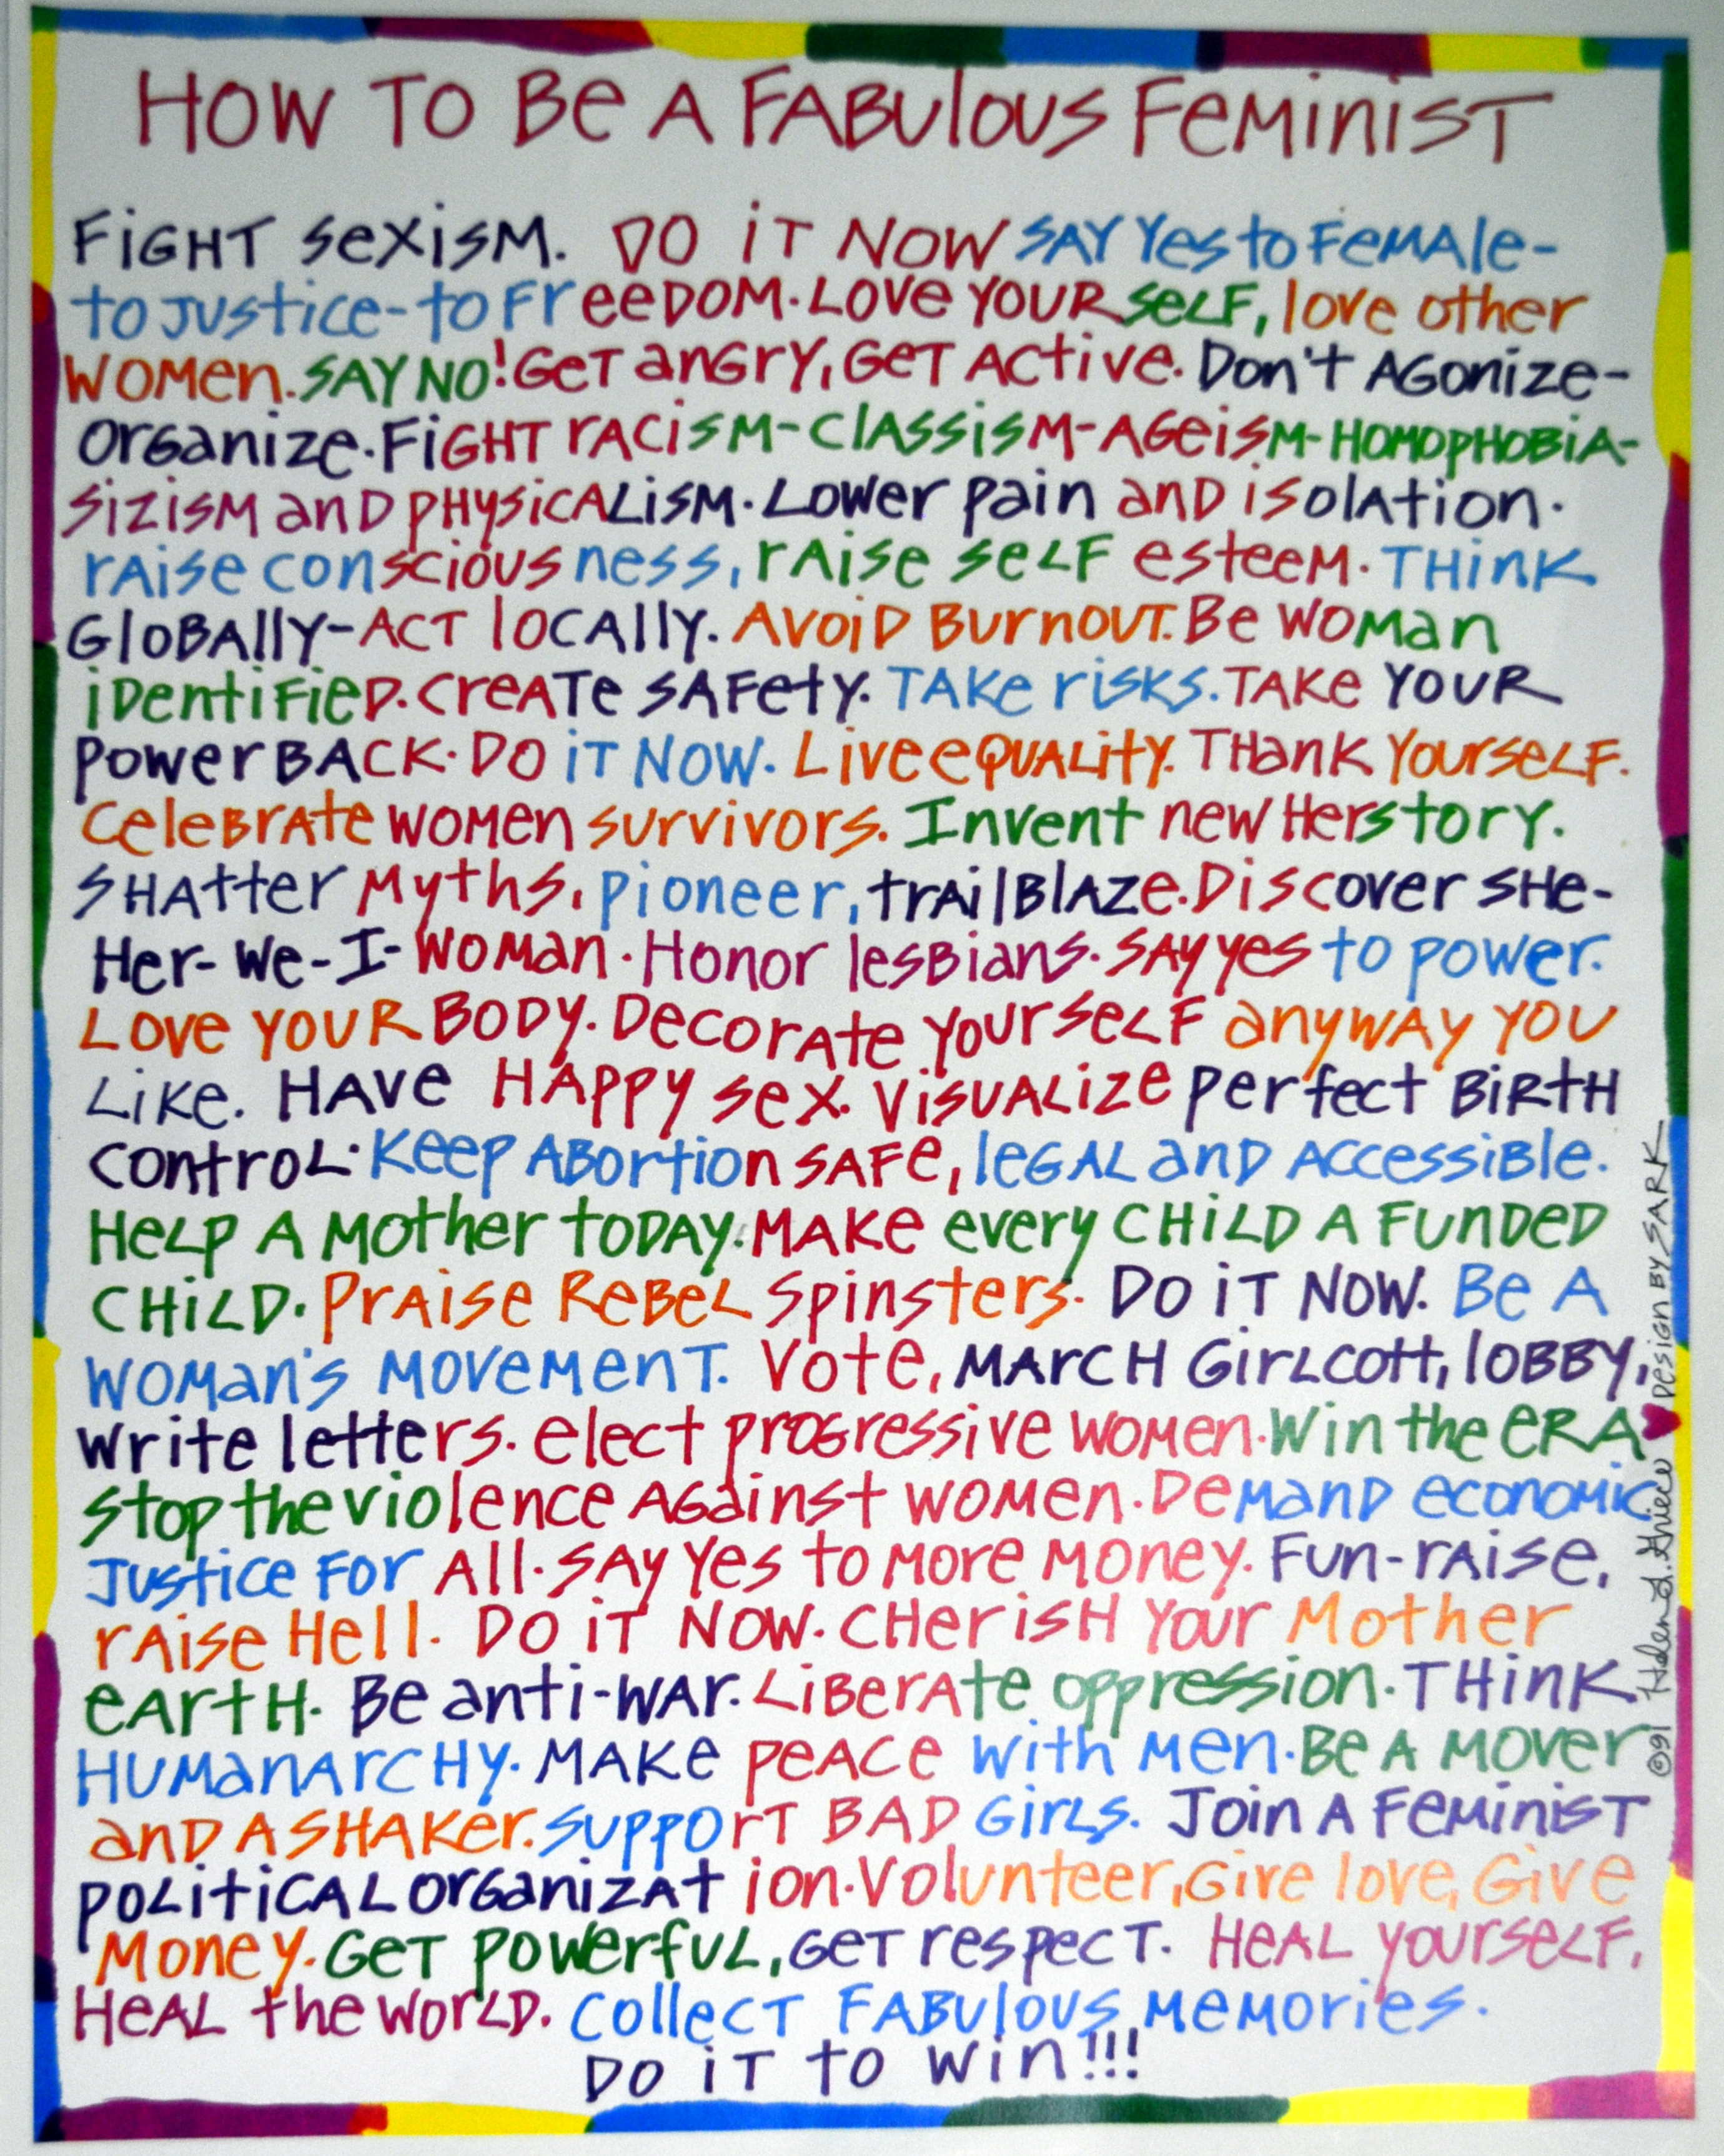 HOW TO Be A FABulous FeMiniST
FiGHT sexisM. DO iT NOW SAY Yes to FeMAle-
to Justice-to FreeDOM. Love YOURseLF, love other
WOMen. SAY NO! GeT anGry, GeT ACtive. Don't AGonize-
OrGanize. FiGHT rACisM-ClAssisM-AGeisM-HOMOpHOBiA-
SizisM anD pHysicALisM. Lower pain anD isolAtion.
rAise consciousness, rAise seLF esteeM. THinK
GloBAlly-ACT loCAlly. AvoiD BurnouT. Be WOMan
iDentiFieD. CreATe SAFety. TAKe risKs. TAKe YOUR
power BACK. DO iT NOW. Live eQUALity. THanK YourseLF.
CeleBrAte WOMen survivors. Invent new Herstory.
SHAtter Myths, pioneer, trAilBlAze. Discover sHe-
Her-We-I-WOMan. Honor lesBians. SAy yes to power.
Love YOUR BODy. DecorAte YourseLF anyWAy YOU
LiKe. HAve HAppy sex. VisuALize perfect BiRtH
ControL. Keep ABortion SAFe, leGAL anD ACCessiBle.
HeLp A Mother toDAy. MAKe every CHiLD A FunDeD
CHiLD. PrAise ReBeL Spinsters. DO iT NOW. Be A
WOMan's MoveMenT. Vote, MArCH GirLCott, lOBBy,
write letters. elect proGressive WOMen. Win the ERA
Stop the violence AGainst WOMen. DeMAnD economic
Justice For All. SAy Yes to More Money. Fun-rAise,
rAise Hell. DO iT NOW. CHerisH Your Mother
eArtH. Be anti-WAr. LiBerAte oppression. THinK
HuManArCHy. MAKe peACe with Men. Be A Mover
anD A SHAKer. Support BAD GirLs. Join A FeMiniST
poLitiCAL orGanizAtion. Volunteer, Give love, Give
Money. GeT powerfuL, GeT respecT. HeAL yourseLF,
HeAL the worLD. CollecT FABulous MeMories.
DO iT to win!!!
©91 Helen J. Griece ♥ Design BY SARK